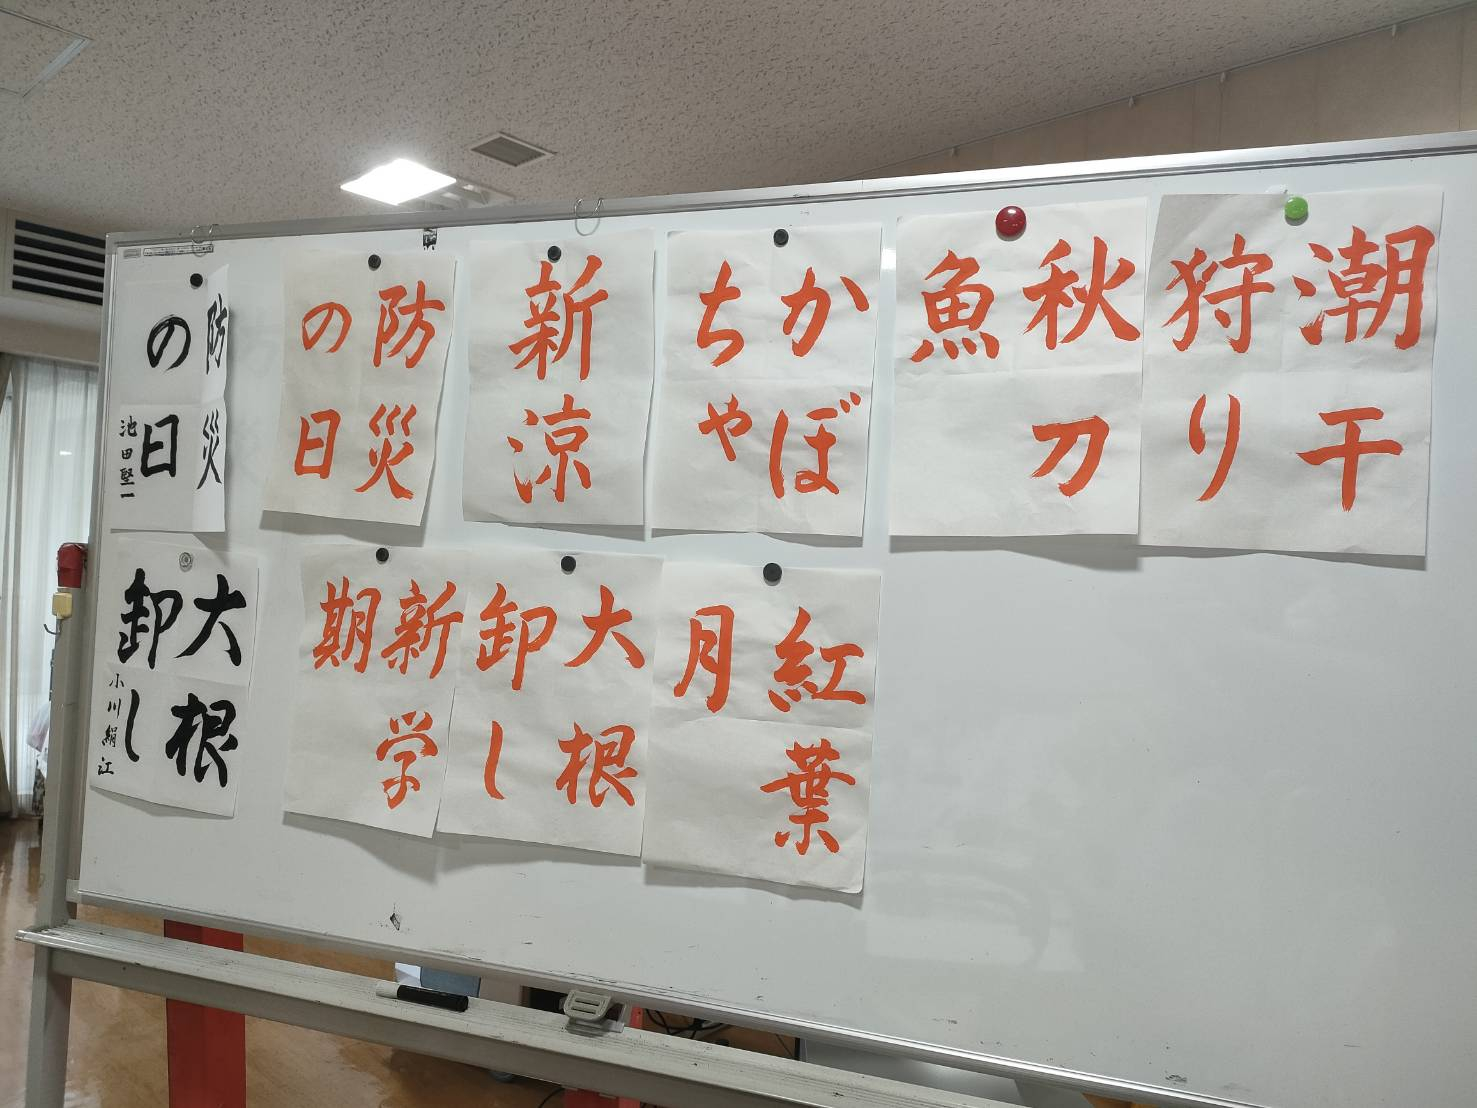 潮干
狩り
秋刀
魚
かぼ
ちゃ
新涼
防災
の日
防災
の日
池田堅一
紅葉
月
大根
卸し
新学
期
大根
卸し
小川絹江